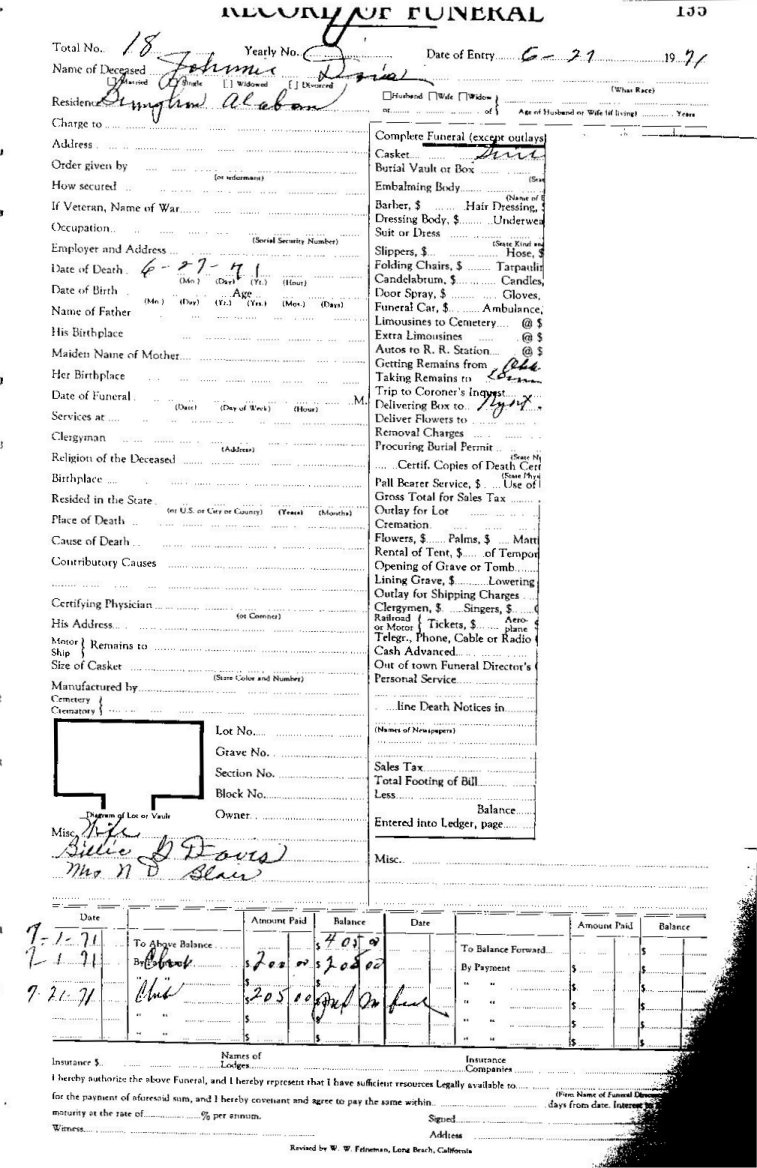 RECORD OF FUNERAL 135
Total No. 18 Yearly No. Date of Entry 6-27 1971
Name of Deceased Johnnie Davis
[ ] Married [ ] Single [ ] Widowed [ ] Divorced (What Race)
Residence Alabama
[ ] Husband [ ] Wife [ ] Widow }
or of } Age of Husband or Wife (if living) Years
Charge to
Address
Order given by
(or informant)
How secured
If Veteran, Name of War
Occupation
(Social Security Number)
Employer and Address
Date of Death 6-27-71
(Mo.) (Day) (Yr.) (Hour)
Date of Birth Age
(Mo.) (Day) (Yr.) (Yrs.) (Mos.) (Days)
Name of Father
His Birthplace
Maiden Name of Mother
Her Birthplace
Date of Funeral M.
(Date) (Day of Week) (Hour)
Services at
Clergyman
(Address)
Religion of the Deceased
Birthplace
Resided in the State
(or U.S. or City or County) (Years) (Months)
Place of Death
Cause of Death
Contributory Causes
Certifying Physician
(or Coroner)
His Address
Motor } Remains to
Ship }
Size of Casket
(State Color and Number)
Manufactured by
Cemetery {
Crematory {
Lot No.
Grave No.
Section No.
Block No.
Diagram of Lot or Vault Owner
Misc. Wife
Billie G Davis
Mrs N D Blair
Complete Funeral (except outlays)
Casket
Burial Vault or Box
Embalming Body
(Name of
Barber, $ Hair Dressing, $
Dressing Body, $ Underwea
Suit or Dress
(State Kind and
Slippers, $ Hose, $
Folding Chairs, $ Tarpaulin
Candelabrum, $ Candles,
Door Spray, $ Gloves,
Funeral Car, $ Ambulance,
Limousines to Cemetery @ $
Extra Limousines @ $
Autos to R. R. Station @ $
Getting Remains from
Taking Remains to
Trip to Coroner's Inquest
Delivering Box to
Deliver Flowers to
Removal Charges
Procuring Burial Permit
Certif. Copies of Death Cert
Pall Bearer Service, $ Use of
Gross Total for Sales Tax
Outlay for Lot
Cremation
Flowers, $ Palms, $ Matt
Rental of Tent, $ of Tempor
Opening of Grave or Tomb
Lining Grave, $ Lowering
Outlay for Shipping Charges
Clergymen, $ Singers, $
Railroad or Motor { Tickets, $ Aeroplane $
Telegr., Phone, Cable or Radio
Cash Advanced
Out of town Funeral Director's
Personal Service
line Death Notices in
(Names of Newspapers)
Sales Tax
Total Footing of Bill
Less
Balance
Entered into Ledger, page
Misc.
Date Amount Paid Balance Date Amount Paid Balance
7-1-71 To Above Balance $405 00 To Balance Forward $
7 1 71 By $200 00 $205 00 By Payment $ $
7-21-71 $205 00 Pd in full " " $ $
" " " " $ $
" " " " $ $
Insurance $ Names of Lodges Insurance Companies
I hereby authorize the above Funeral, and I hereby represent that I have sufficient resources Legally available to
(Firm Name of Funeral Direc
for the payment of aforesaid sum, and I hereby covenant and agree to pay the same within days from date. Interest
maturity at the rate of % per annum. Signed
Witness Address
Revised by W. W. Feineman, Long Beach, California